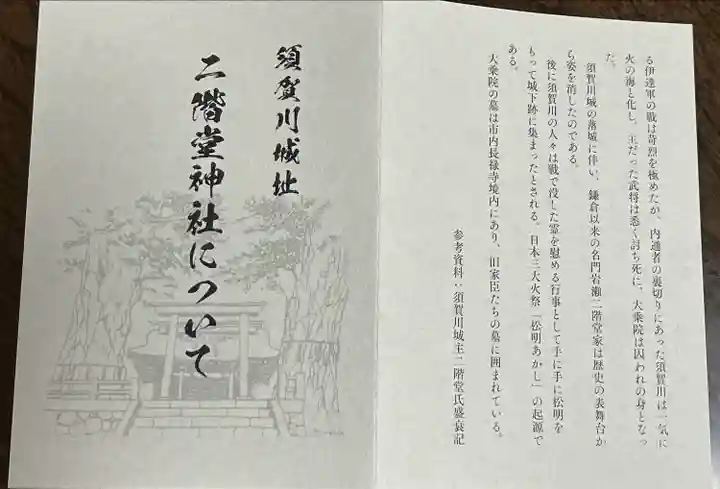 る伊達軍の戦は苛烈を極めたが、内通者の裏切りにあった須賀川は一気に
火の海と化し、主だった武将は悉く討ち死に、大乗院は囚われの身となっ
た。
須賀川城の落城に伴い、鎌倉以来の名門岩瀬二階堂家は歴史の表舞台か
ら姿を消したのである。
後に須賀川の人々は戦で没した霊を慰める行事として手に手に松明を
もって城下跡に集まったとされる。日本三大火祭「松明あかし」の起源で
ある。
大乗院の墓は市内長禄寺境内にあり、旧家臣たちの墓に囲まれている。
参考資料：須賀川城主二階堂氏盛衰記
須賀川城址
二階堂神社について